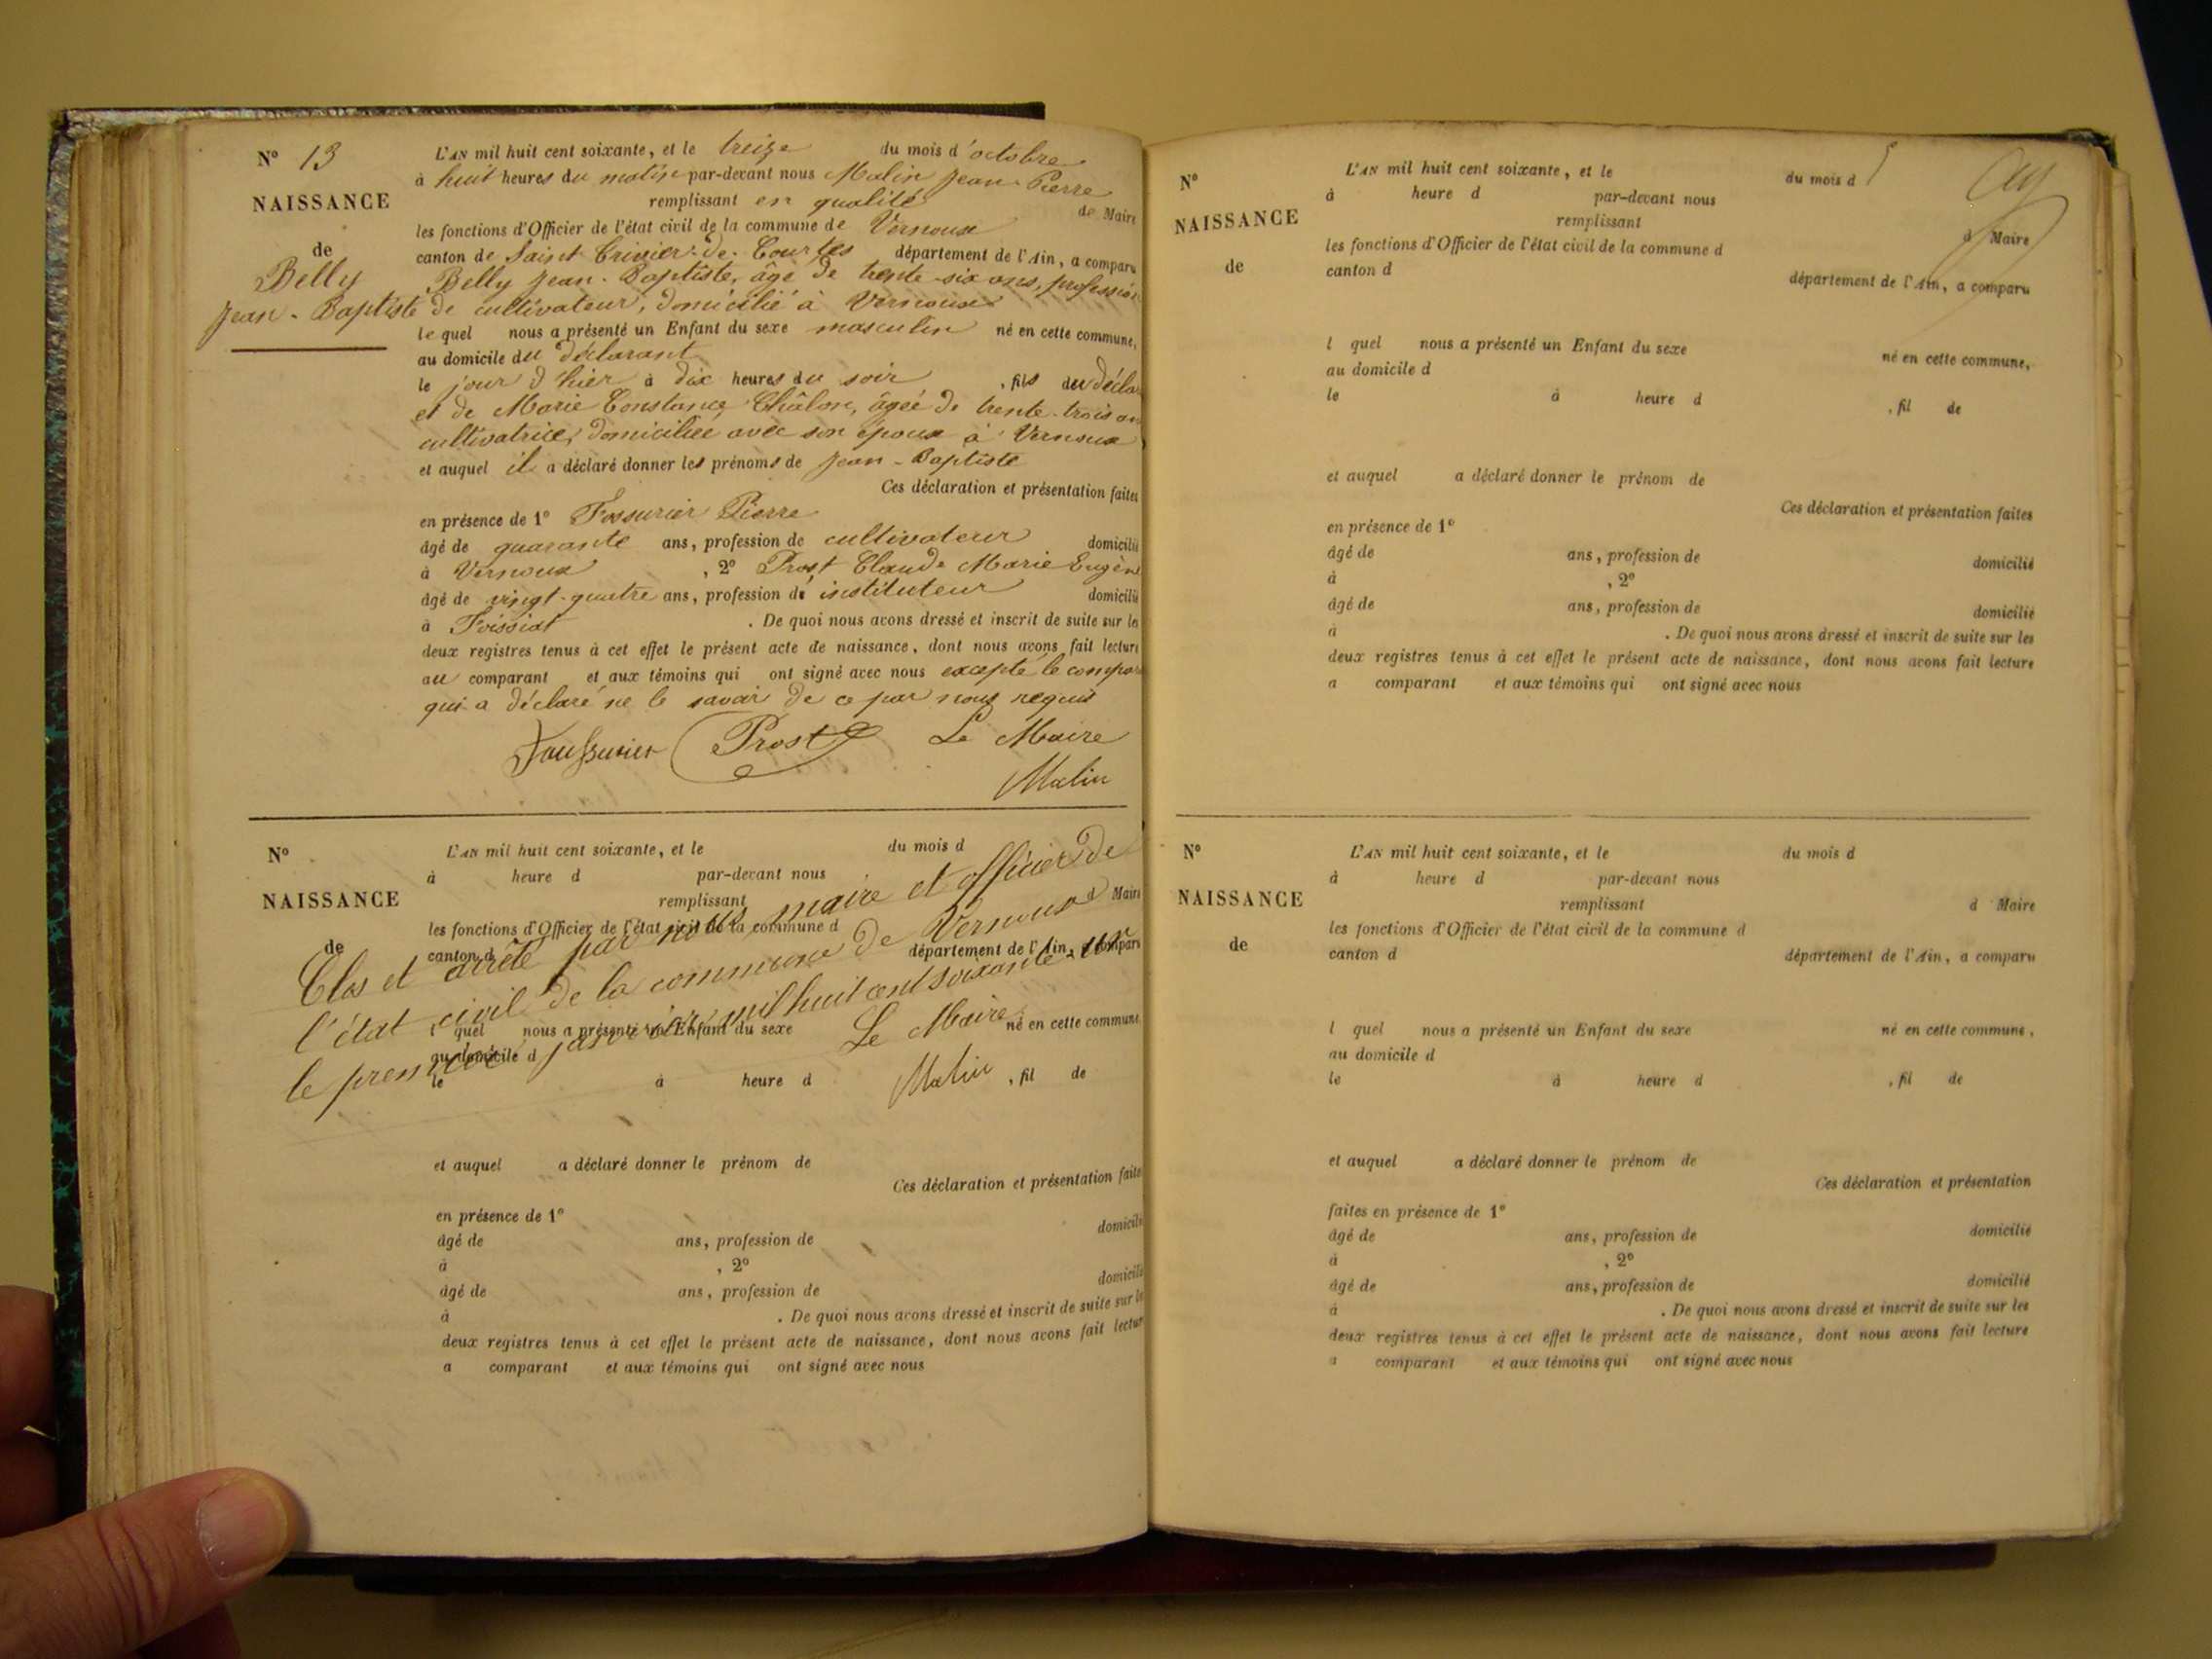 N° 13
NAISSANCE
de
Belly
Jean-Baptiste
L'AN mil huit cent soixante, et le treize du mois d'octobre
à huit heures du matin par-devant nous Malin Jean-Pierre
remplissant en qualité de Maire
les fonctions d'Officier de l'état civil de la commune de Vernoux
canton de Saint-Trivier-de-Courtes département de l'Ain, a comparu
Belly Jean-Baptiste, âgé de trente-six ans, profession
de cultivateur, domicilié à Vernoux
lequel nous a présenté un Enfant du sexe masculin né en cette commune,
au domicile du déclarant
le jour d'hier à dix heures du soir, fils du décla
et de Marie Constance Châlon, âgée de trente-trois an
cultivatrice, domiciliée avec son époux à Vernoux
et auquel il a déclaré donner les prénoms de Jean-Baptiste
Ces déclaration et présentation faites
en présence de 1° Fossurier Pierre
âgé de quarante ans, profession de cultivateur domicilié
à Vernoux, 2° Prost Claude Marie Eugène
âgé de vingt-quatre ans, profession de instituteur domicilié
à Foissiat. De quoi nous avons dressé et inscrit de suite sur les
deux registres tenus à cet effet le présent acte de naissance, dont nous avons fait lecture
au comparant et aux témoins qui ont signé avec nous excepté le compa
qui a déclaré ne le savoir de ce par nous requis
Prost Le Maire
Malin
N°
NAISSANCE
de
L'AN mil huit cent soixante, et le du mois d
à heure d par-devant nous
remplissant d Maire
les fonctions d'Officier de l'état civil de la commune d
canton d département de l'Ain, a comparu
Clos et arrêté par nous maire et officier de
l'état civil de la commune de Vernoux
le premier janvier mil huit cent soixante-un
Le Maire
Malin
l quel nous a présenté un Enfant du sexe né en cette commune
au domicile d
le à heure d , fil de
et auquel a déclaré donner le prénom de
Ces déclaration et présentation faites
en présence de 1°
âgé de ans, profession de domicilié
à , 2°
âgé de ans, profession de domicilié
à . De quoi nous avons dressé et inscrit de suite sur le
deux registres tenus à cet effet le présent acte de naissance, dont nous avons fait lectur
a comparant et aux témoins qui ont signé avec nous
N°
NAISSANCE
de
L'AN mil huit cent soixante, et le du mois d
à heure d par-devant nous
remplissant d Maire
les fonctions d'Officier de l'état civil de la commune d
canton d département de l'Ain, a comparu
l quel nous a présenté un Enfant du sexe né en cette commune,
au domicile d
le à heure d , fil de
et auquel a déclaré donner le prénom de
Ces déclaration et présentation faites
en présence de 1°
âgé de ans, profession de domicilié
à , 2°
âgé de ans, profession de domicilié
à . De quoi nous avons dressé et inscrit de suite sur les
deux registres tenus à cet effet le présent acte de naissance, dont nous avons fait lecture
a comparant et aux témoins qui ont signé avec nous
N°
NAISSANCE
de
L'AN mil huit cent soixante, et le du mois d
à heure d par-devant nous
remplissant d Maire
les fonctions d'Officier de l'état civil de la commune d
canton d département de l'Ain, a comparu
l quel nous a présenté un Enfant du sexe né en cette commune,
au domicile d
le à heure d , fil de
et auquel a déclaré donner le prénom de
Ces déclaration et présentation
faites en présence de 1°
âgé de ans, profession de domicilié
à , 2°
âgé de ans, profession de domicilié
à . De quoi nous avons dressé et inscrit de suite sur les
deux registres tenus à cet effet le présent acte de naissance, dont nous avons fait lecture
a comparant et aux témoins qui ont signé avec nous